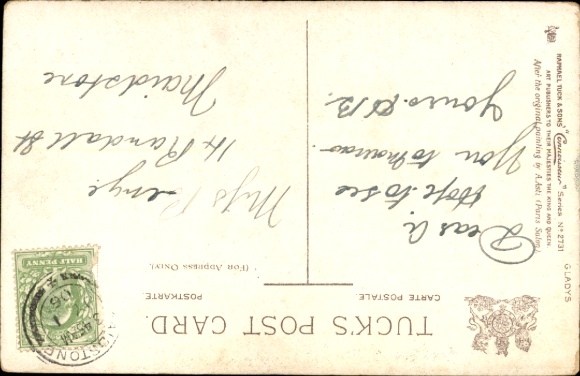 TUCK'S POST CARD.
CARTE POSTALE
POSTKARTE
(FOR ADDRESS ONLY).
GLADYS
RAPHAEL TUCK & SONS' "Connoisseur" Series Nº 2731
ART PUBLISHERS TO THEIR MAJESTIES THE KING AND QUEEN.
After the original painting by A. Asti (Paris Salon)
Dear A.
Hope to see
You to
Yours. A B.
Miss
14 Randall St
Maidstone
HALF PENNY